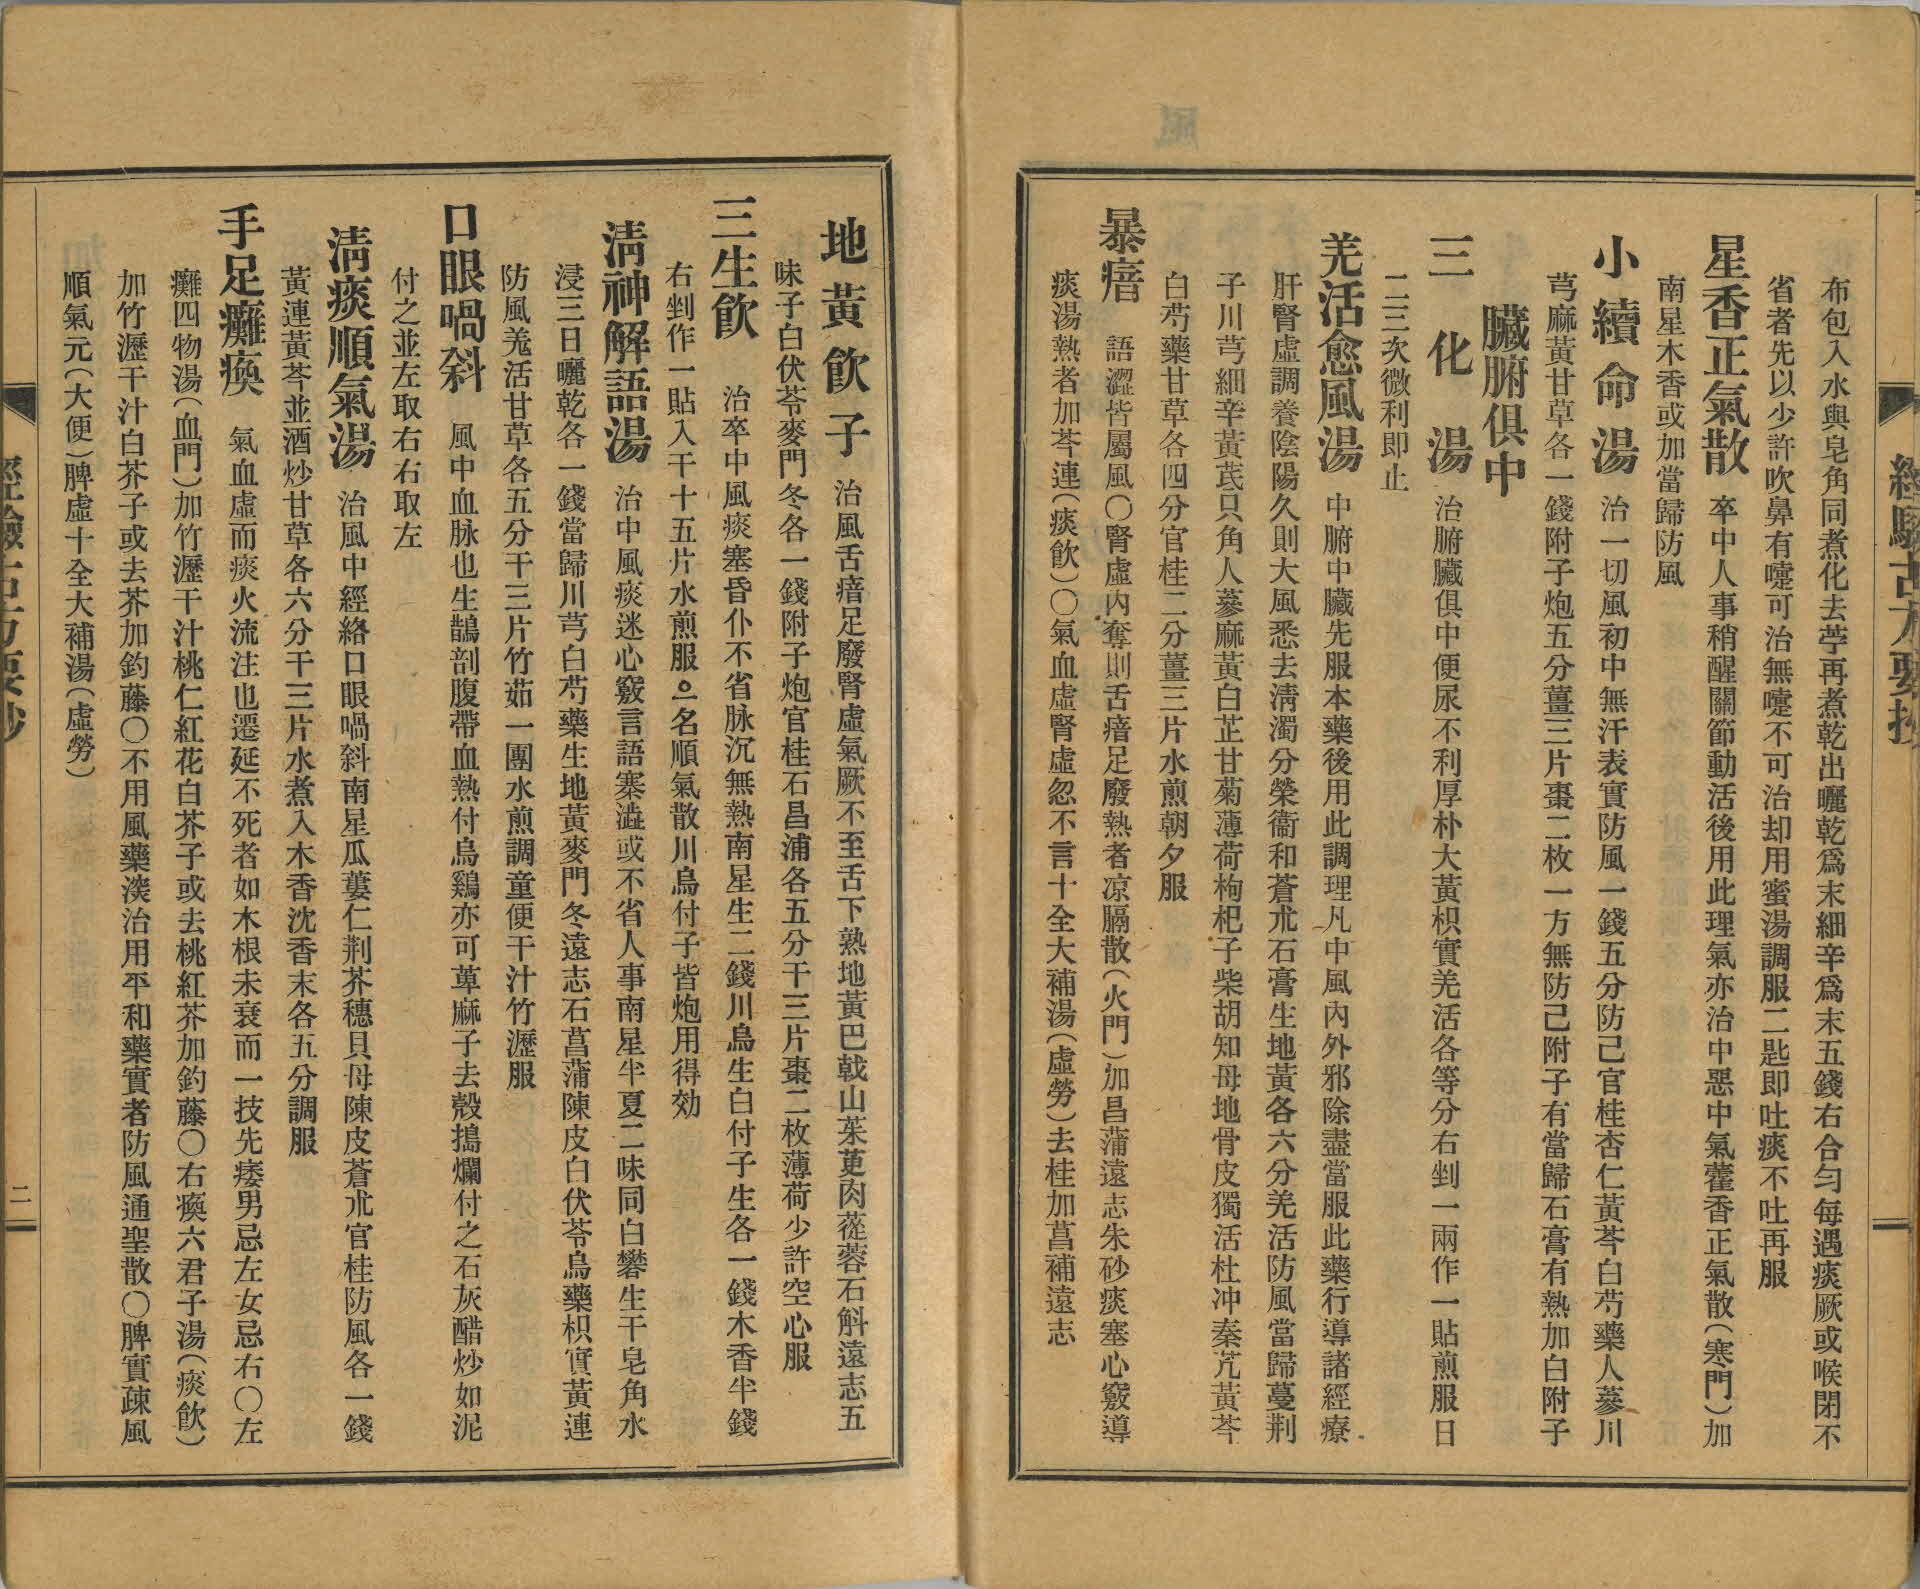 經驗古方要抄
一
布包入水與皂角同煮化去莩再煮乾出曬乾爲末細辛爲末五錢右合勻每遇痰厥或喉閉不
省者先以少許吹鼻有嚏可治無嚏不可治却用蜜湯調服二匙即吐痰不吐再服
星香正氣散 卒中人事稍醒關節動活後用此理氣亦治中惡中氣藿香正氣散(寒門)加
南星木香或加當歸防風
小續命湯 治一切風初中無汗表實防風一錢五分防己官桂杏仁黃芩白芍藥人蔘川
芎麻黃甘草各一錢附子炮五分薑三片棗二枚一方無防己附子有當歸石膏有熱加白附子
臟腑俱中
三化湯 治腑臟俱中便尿不利厚朴大黃枳實羌活各等分右剉一兩作一貼煎服日
二三次微利即止
羌活愈風湯 中腑中臟先服本藥後用此調理凡中風內外邪除盡當服此藥行導諸經療
肝腎虛調養陰陽久則大風悉去淸濁分榮衞和蒼朮石膏生地黃各六分羌活防風當歸蔓荆
子川芎細辛黃芪只角人蔘麻黃白芷甘菊薄荷枸杞子柴胡知母地骨皮獨活杜冲秦艽黃芩
白芍藥甘草各四分官桂二分薑三片水煎朝夕服
暴瘖 語澀皆屬風〇腎虛內奪則舌瘖足廢熱者凉膈散(火門)加昌蒲遠志朱砂痰塞心竅導
痰湯熱者加芩連(痰飮)〇氣血虛腎虛忽不言十全大補湯(虛勞)去桂加菖補遠志
地黃飮子 治風舌瘖足廢腎虛氣厥不至舌下熟地黃巴戟山茱萸肉蓯蓉石斛遠志五
味子白伏苓麥門冬各一錢附子炮官桂石昌浦各五分干三片棗二枚薄荷少許空心服
三生飮 治卒中風痰塞昏仆不省脉沉無熱南星生二錢川烏生白付子生各一錢木香半錢
右剉作一貼入干十五片水煎服〇一名順氣散川烏付子皆炮用得効
淸神解語湯 治中風痰迷心竅言語蹇澁或不省人事南星半夏二味同白礬生干皂角水
浸三日曬乾各一錢當歸川芎白芍藥生地黃麥門冬遠志石菖蒲陳皮白伏苓烏藥枳實黃連
防風羗活甘草各五分干三片竹茹一團水煎調童便干汁竹瀝服
口眼喎斜 風中血脉也生鵲剖腹帶血熱付烏鷄亦可萆麻子去殼搗爛付之石灰醋炒如泥
付之並左取右右取左
淸痰順氣湯 治風中經絡口眼喎斜南星瓜蔞仁荆芥穗貝母陳皮蒼朮官桂防風各一錢
黃連黃芩並酒炒甘草各六分干三片水煮入木香沈香末各五分調服
手足癱瘓 氣血虛而痰火流注也遷延不死者如木根未衰而一技先痿男忌左女忌右〇左
癱四物湯(血門)加竹瀝干汁桃仁紅花白芥子或去桃紅芥加釣藤〇右瘓六君子湯(痰飮)
加竹瀝干汁白芥子或去芥加釣藤〇不用風藥渶治用平和藥實者防風通聖散〇脾實疎風
順氣元(大便)脾虛十全大補湯(虛勞)
經驗古方要抄
二